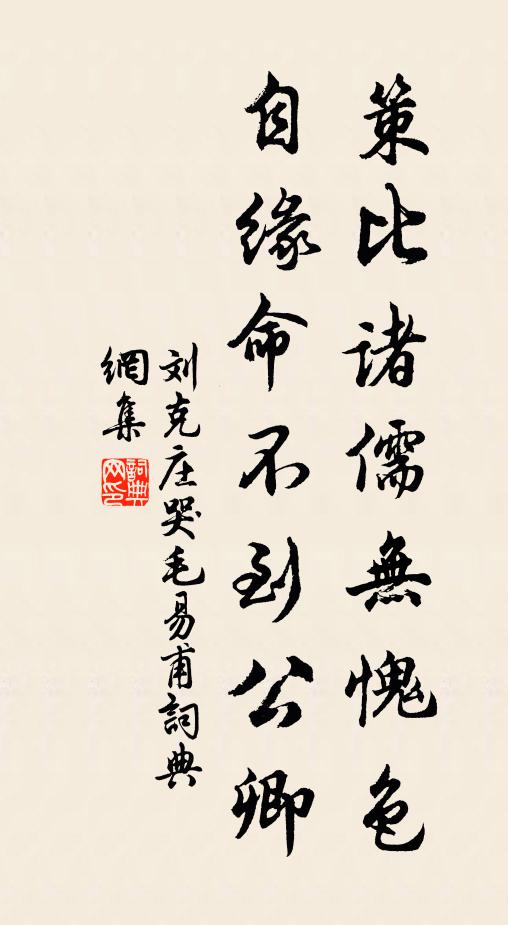 策比諸儒無愧色
自緣命不到公卿
刘克庄哭毛易甫詞典
網集
詞典
网印